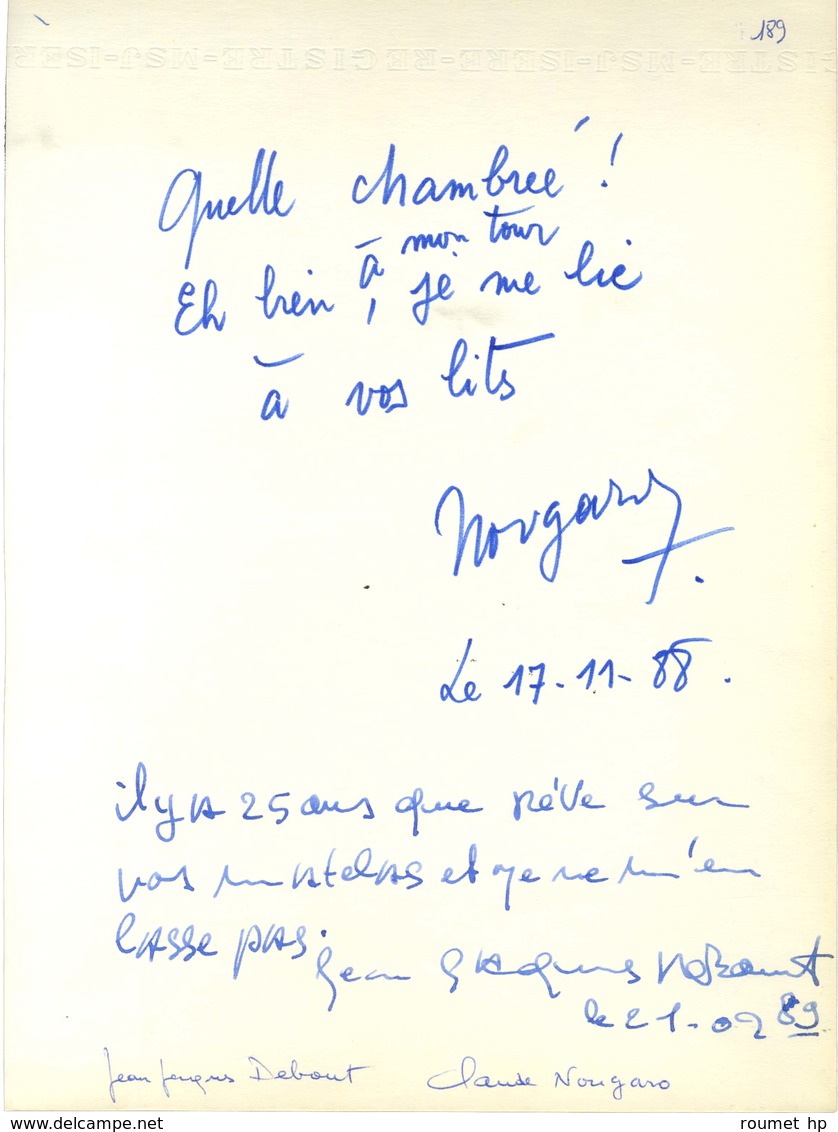 189
REGISTRE-MSJ-ISERE-REGISTRE-MSJ-ISER
Quelle chambrée !
à mon tour
Eh bien, je me lie
à vos lits
Nougaro.
Le 17-11-88.
il y a 25 ans que rêve sur
vos matelas et je ne m'en
lasse pas.
Jean Jacques Debout
le 21-02 89
Jean Jacques Debout Claude Nougaro
roumet hp